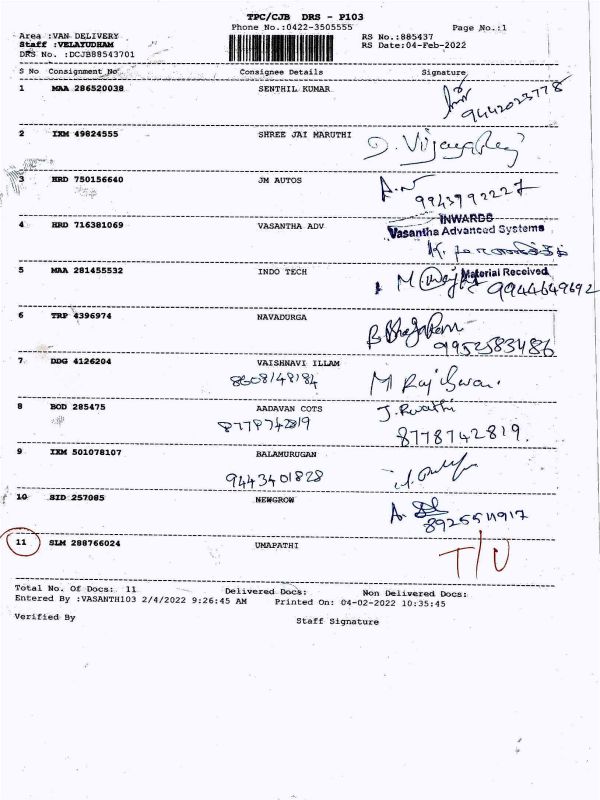 TPC/CJB DRS - P103
Phone No.:0422-3505555 Page No.:1
Area :VAN DELIVERY RS No.:885437
Staff :VELAYUDHAM RS Date:04-Feb-2022
DRS No. :DCJBB8543701
S No Consignment No Consignee Details Signature
1 MAA 286520038 SENTHIL KUMAR
9442023778
2 IXM 49824555 SHREE JAI MARUTHI
3 HRD 750156640 JM AUTOS A.N
9943992227
4 HRD 716381069 VASANTHA ADV INWARDS
Vasantha Advanced Systems
5 MAA 281455532 INDO TECH Material Received
9944649692
6 TRP 4396974 NAVADURGA
9952583486
7 DDG 4126204 VAISHNAVI ILLAM
8608148184
8 BOD 285475 AADAVAN COTS
8778742819 8778742819.
9 IXM 501078107 BALAMURUGAN
9443401828
10 SID 257085 NEWGROW
8925511917
11 SLM 288766024 UMAPATHI T/U
Total No. Of Docs: 11 Delivered Docs: Non Delivered Docs:
Entered By :VASANTHI03 2/4/2022 9:26:45 AM Printed On: 04-02-2022 10:35:45
Verified By Staff Signature